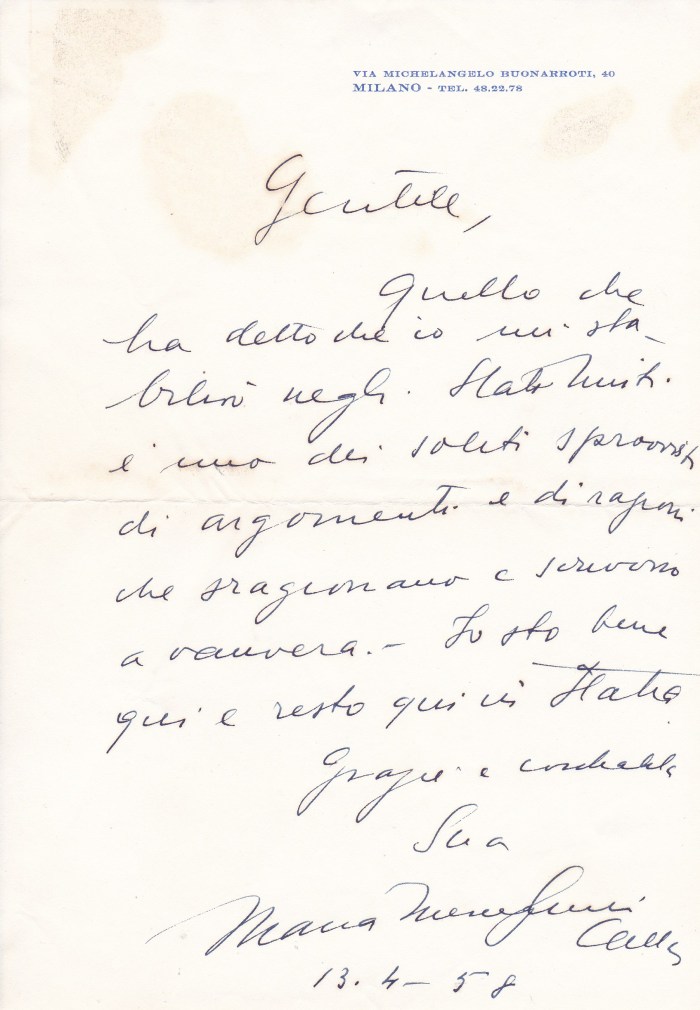 VIA MICHELANGELO BUONARROTI, 40
MILANO - TEL. 48.22.78
Gentile,
Quello che
ha detto che io mi sta-
bilirò negli Stati Uniti
è uno dei soliti sprovvisti
di argomenti e di ragioni
che sragionano e scrivono
a vanvera. - Io sto bene
qui e resto qui in Italia
Grazie e cordialità
Sua
Maria Meneghini
Callas
13. 4 - 58